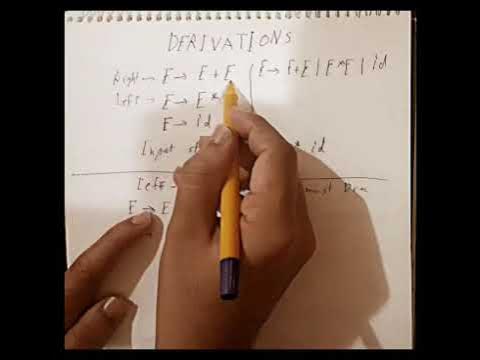 DERIVATIONS
Right → E → E + E | E → E+E | E*E | id
Left → E → E*
E → id
Input id
Left most
E → E